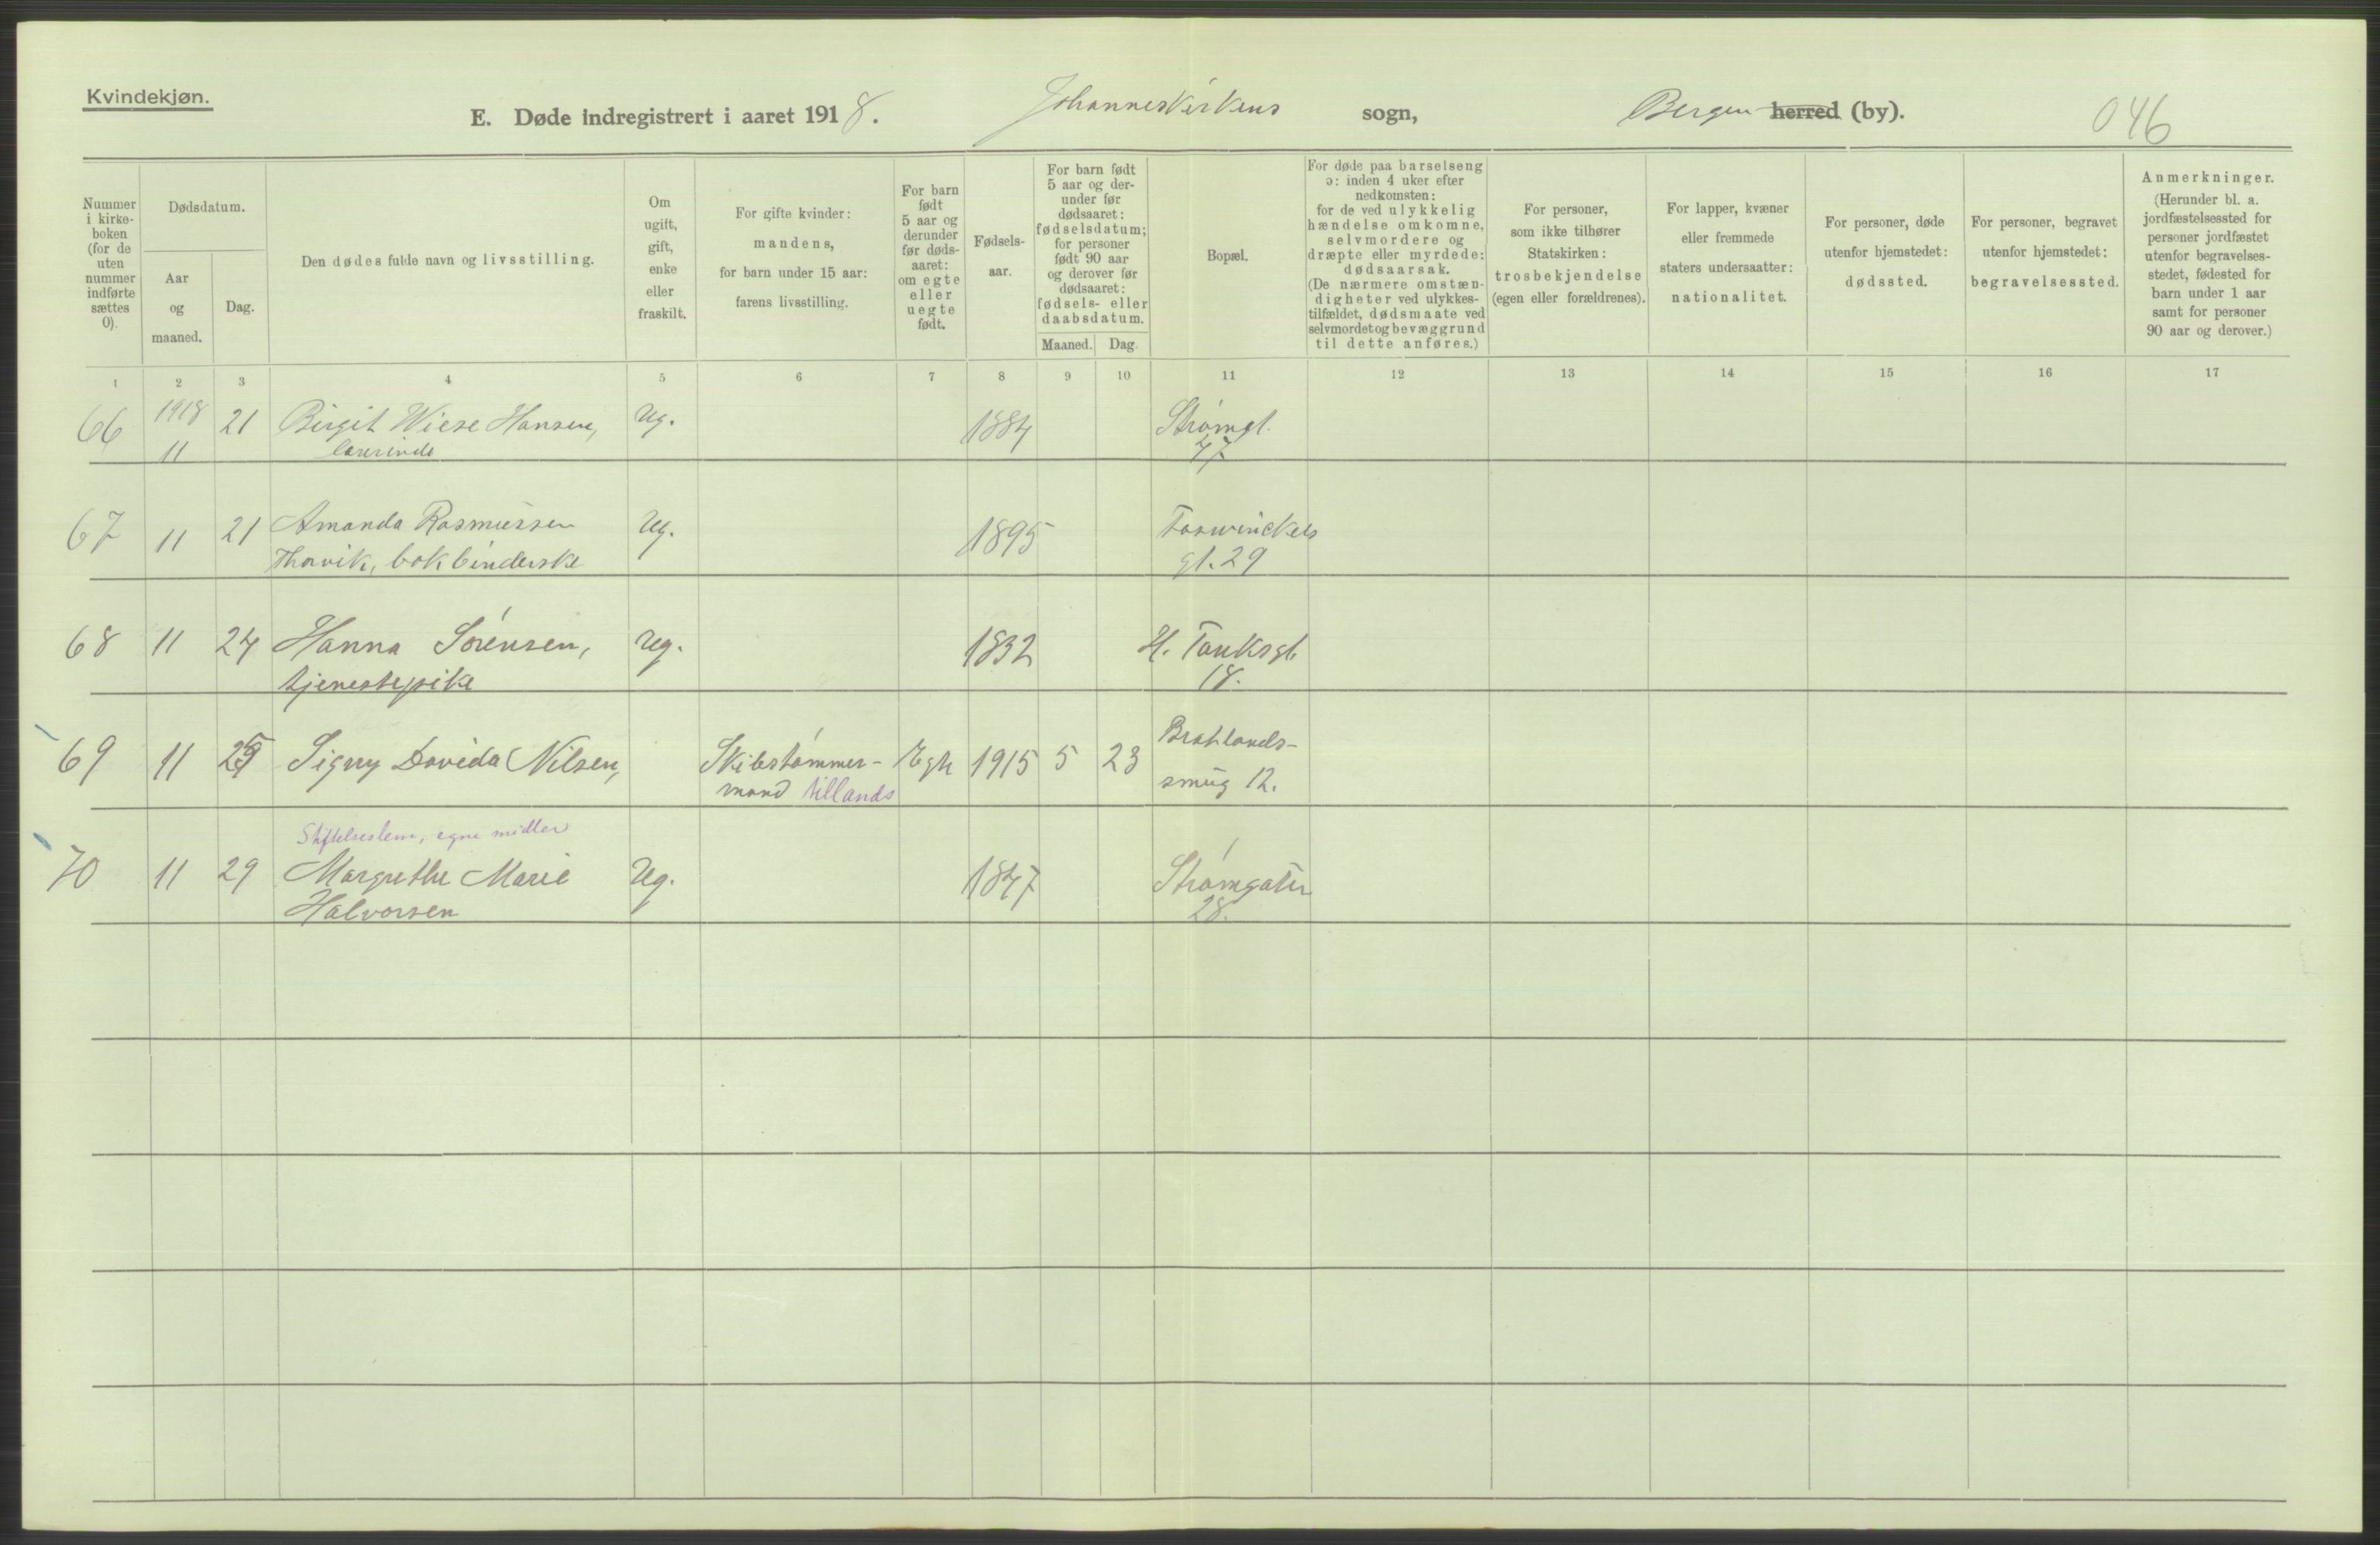 Kvindekjøn.
E. Døde indregistrert i aaret 1918. Johanneskirkens sogn, Bergen herred (by). 046
Nummer i kirke-boken (for de uten nummer indførte sættes 0).
Dødsdatum.
Aar og maaned.
Dag.
Den dødes fulde navn og livsstilling.
Om ugift, gift, enke eller fraskilt.
For gifte kvinder: mandens, for barn under 15 aar: farens livsstilling.
For barn født 5 aar og derunder før døds-aaret: om egte eller uegte født.
Fødsels-aar.
For barn født 5 aar og der-under før dødsaaret: fødselsdatum; for personer født 90 aar og derover før dødsaaret: fødsels- eller daabsdatum.
Maaned. Dag.
Bopæl.
For døde paa barselseng ɔ: inden 4 uker efter nedkomsten: for de ved ulykkelig hændelse omkomne, selvmordere og dræpte eller myrdede: dødsaarsak. (De nærmere omstæn-digheter ved ulykkes-tilfældet, dødsmaate ved selvmordet og bevæggrund til dette anføres.)
For personer, som ikke tilhører Statskirken: trosbekjendelse (egen eller forældrenes).
For lapper, kvæner eller fremmede staters undersaatter: nationalitet.
For personer, døde utenfor hjemstedet: dødssted.
For personer, begravet utenfor hjemstedet: begravelsessted.
Anmerkninger. (Herunder bl. a. jordfæstelsessted for personer jordfæstet utenfor begravelses-stedet, fødested for barn under 1 aar samt for personer 90 aar og derover.)
1 2 3 4 5 6 7 8 9 10 11 12 13 14 15 16 17
66 1918 11 21 Birgit Wiese Hansen, Ug. 1884 Strømgt.
lærerinde 47
67 11 21 Amanda Rasmussen Ug. 1895 Foswinckels
Thorvik, bokbinderske gt. 29
68 11 24 Hanna Sørensen, Ug. 1832 H. Tanksgt.
tjenestepike 18.
69 11 25 Signy Davida Nilsen, Skibstømmer- Egte 1915 5 23 Bratlands-
mand tillands smug 12.
Stiftelseslem, egne midler
70 11 29 Margrethe Marie Ug. 1847 Strømgaten
Halvorsen 28.